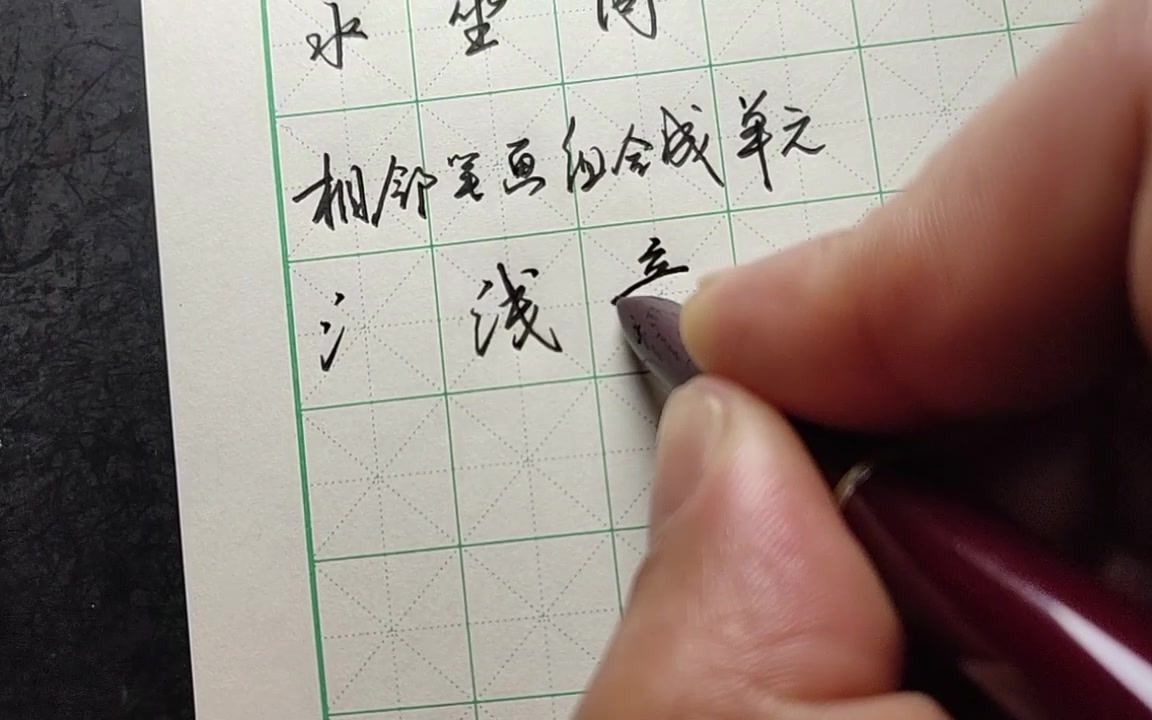 水 坐
相邻笔画组合成单元
氵 浅